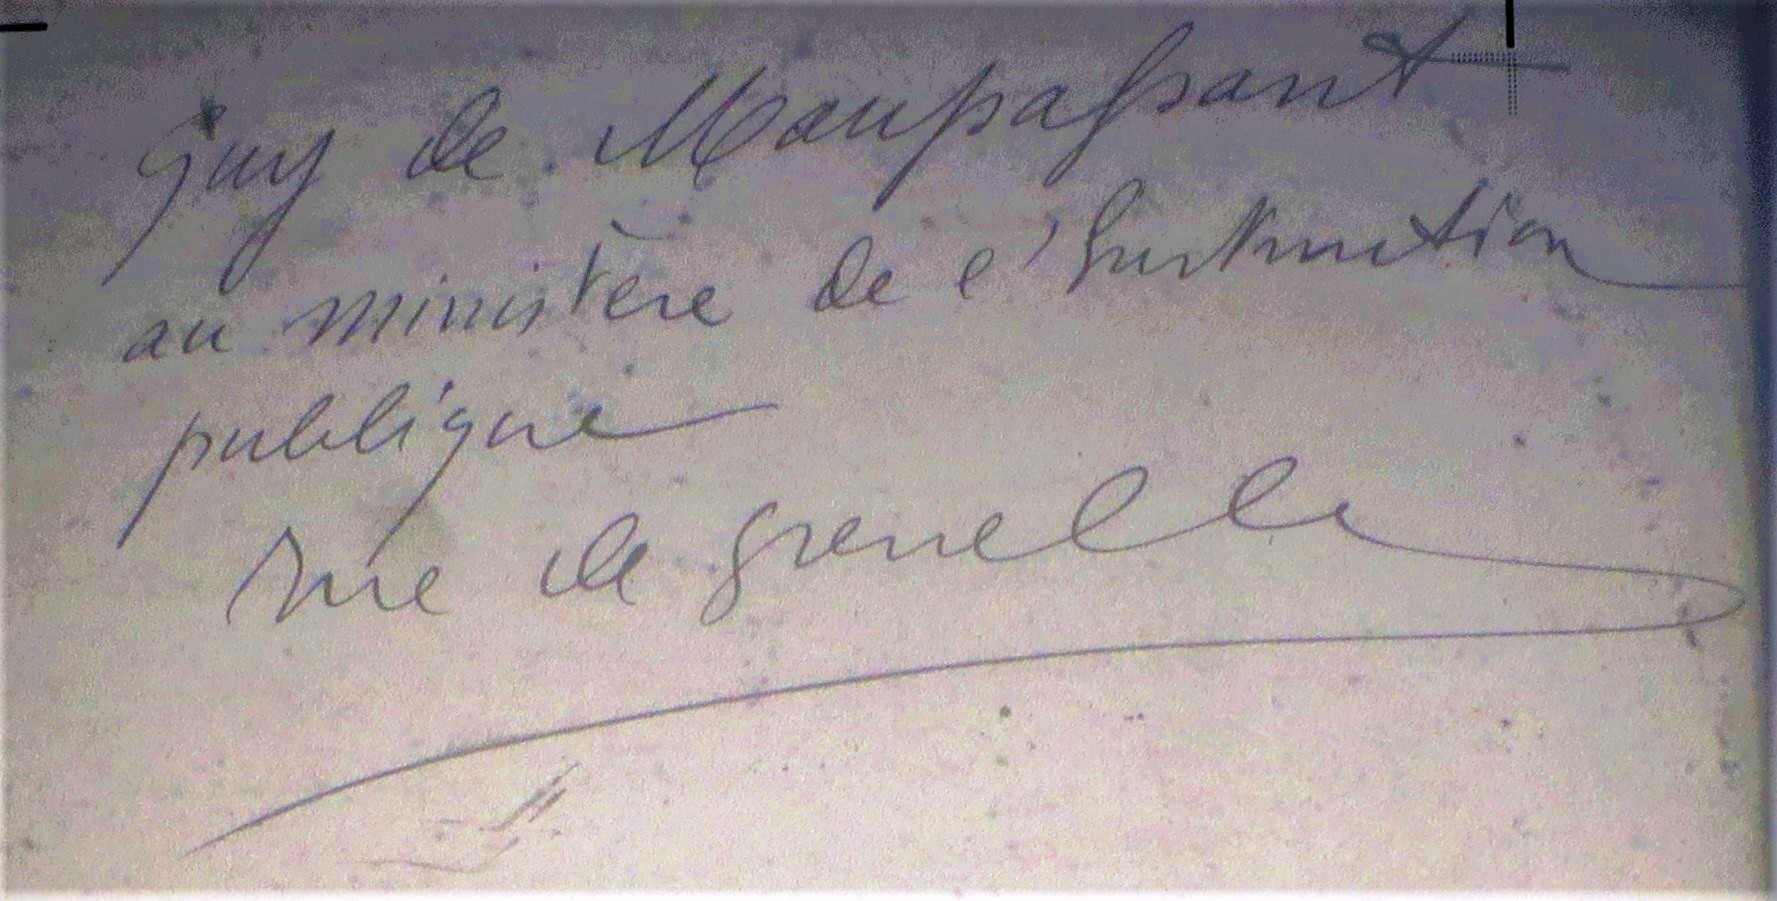 Guy de Maupassant
au ministère de l'Instruction
publique
rue de grenelle